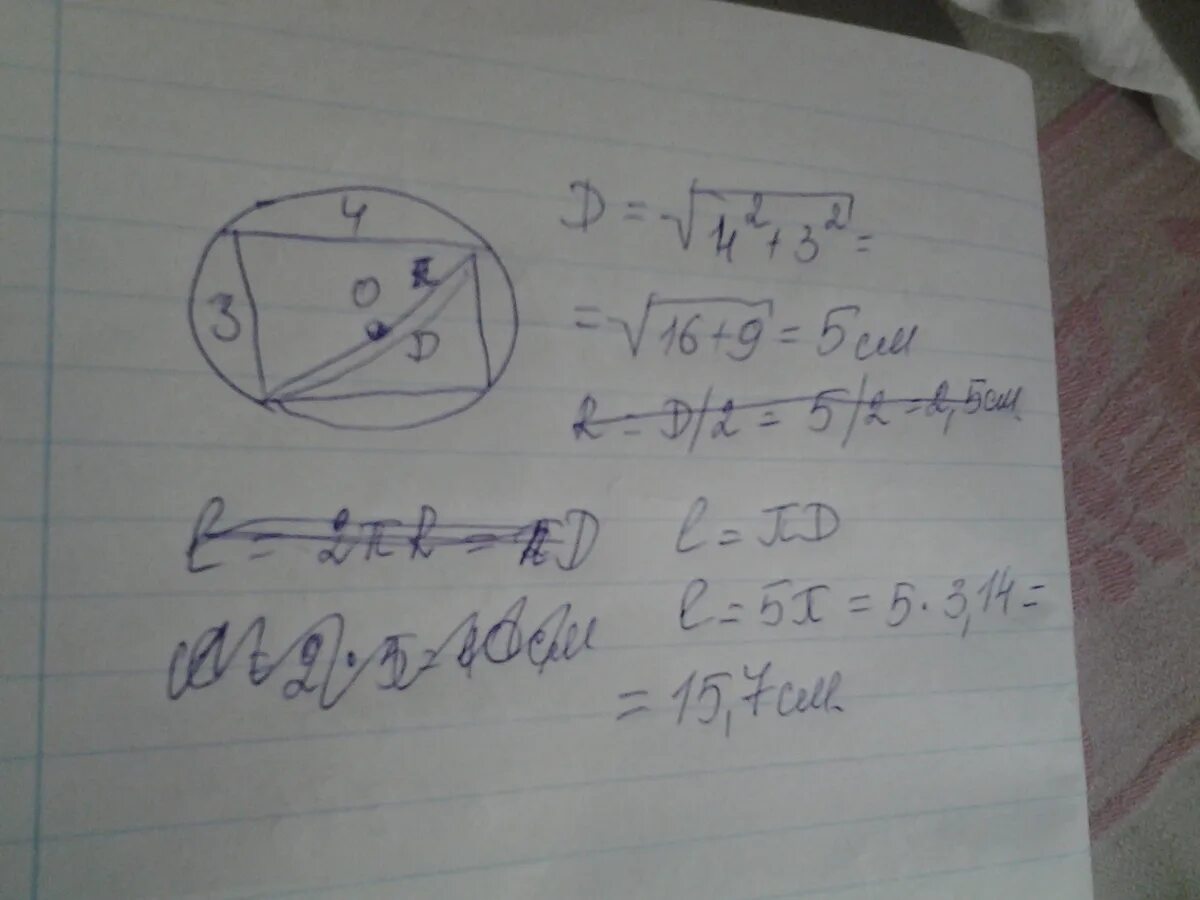 4
3
O
R
D
D = √4² + 3² =
= √16+9 = 5 см
R = D/2 = 5/2 = 2,5 см.
ℓ = 2πR = πD
ℓ = πD
ℓ = 5π = 5 · 3,14 =
= 15,7 см.